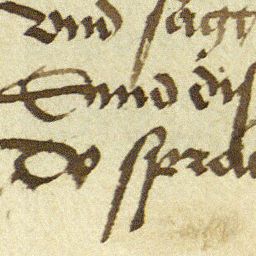 vnd sagt
Vnnd dis
Do sprac